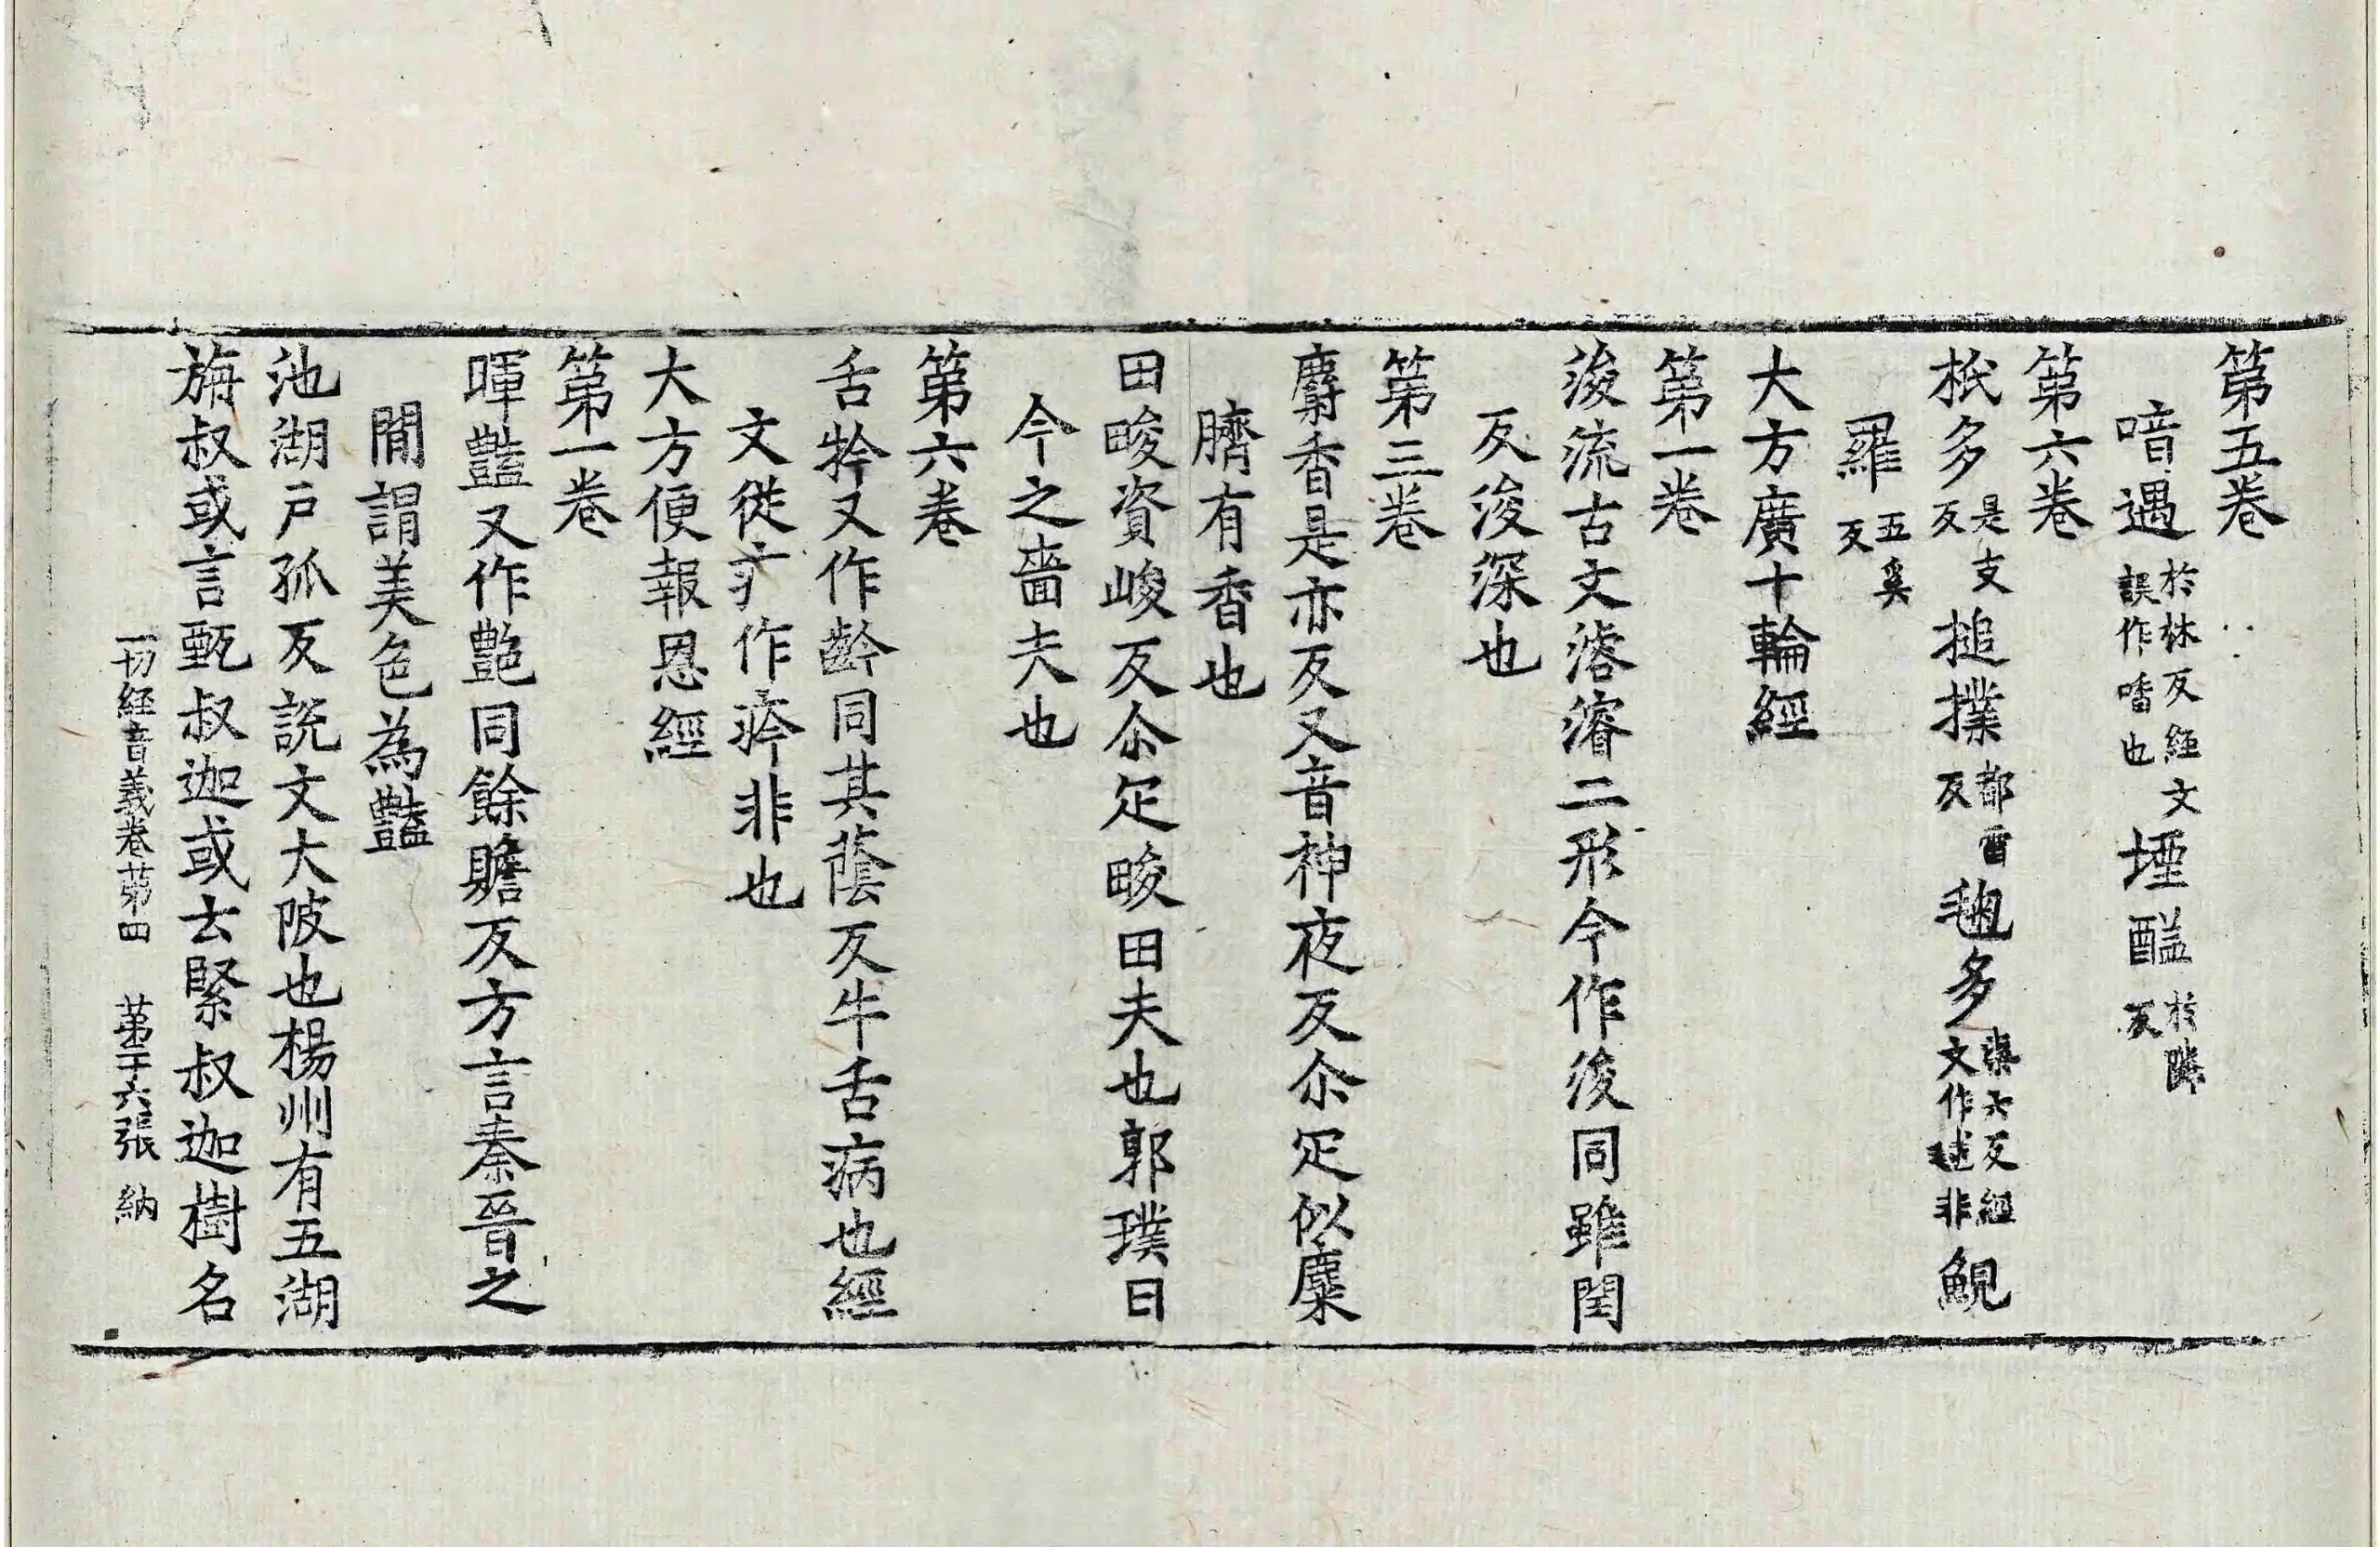 第五卷
喑遇於林反經文誤作噾也堙醢於隣反
第六卷
柢多是支反搥撲都雷反毱多渠六反經文作毬非鯢
羅五奚反
大方廣十輪經
第一卷
浚流古文濬濬二形今作浚同雖閏
反浚深也
第三卷
麝香是亦反又音神夜反尒疋似麋
臍有香也
田畯資峻反尒疋畯田夫也郭璞曰
今之嗇夫也
第六卷
舌㸫又作齡同其蔭反牛舌病也經
文從疒作疹非也
大方便報恩經
第一卷
暉豔又作艷同餘贍反方言秦晉之
閒謂美色為豔
池湖戶孤反說文大陂也楊州有五湖
旃叔或言甄叔迦或云緊叔迦樹名
一切經音義卷第四 第二十六張 納